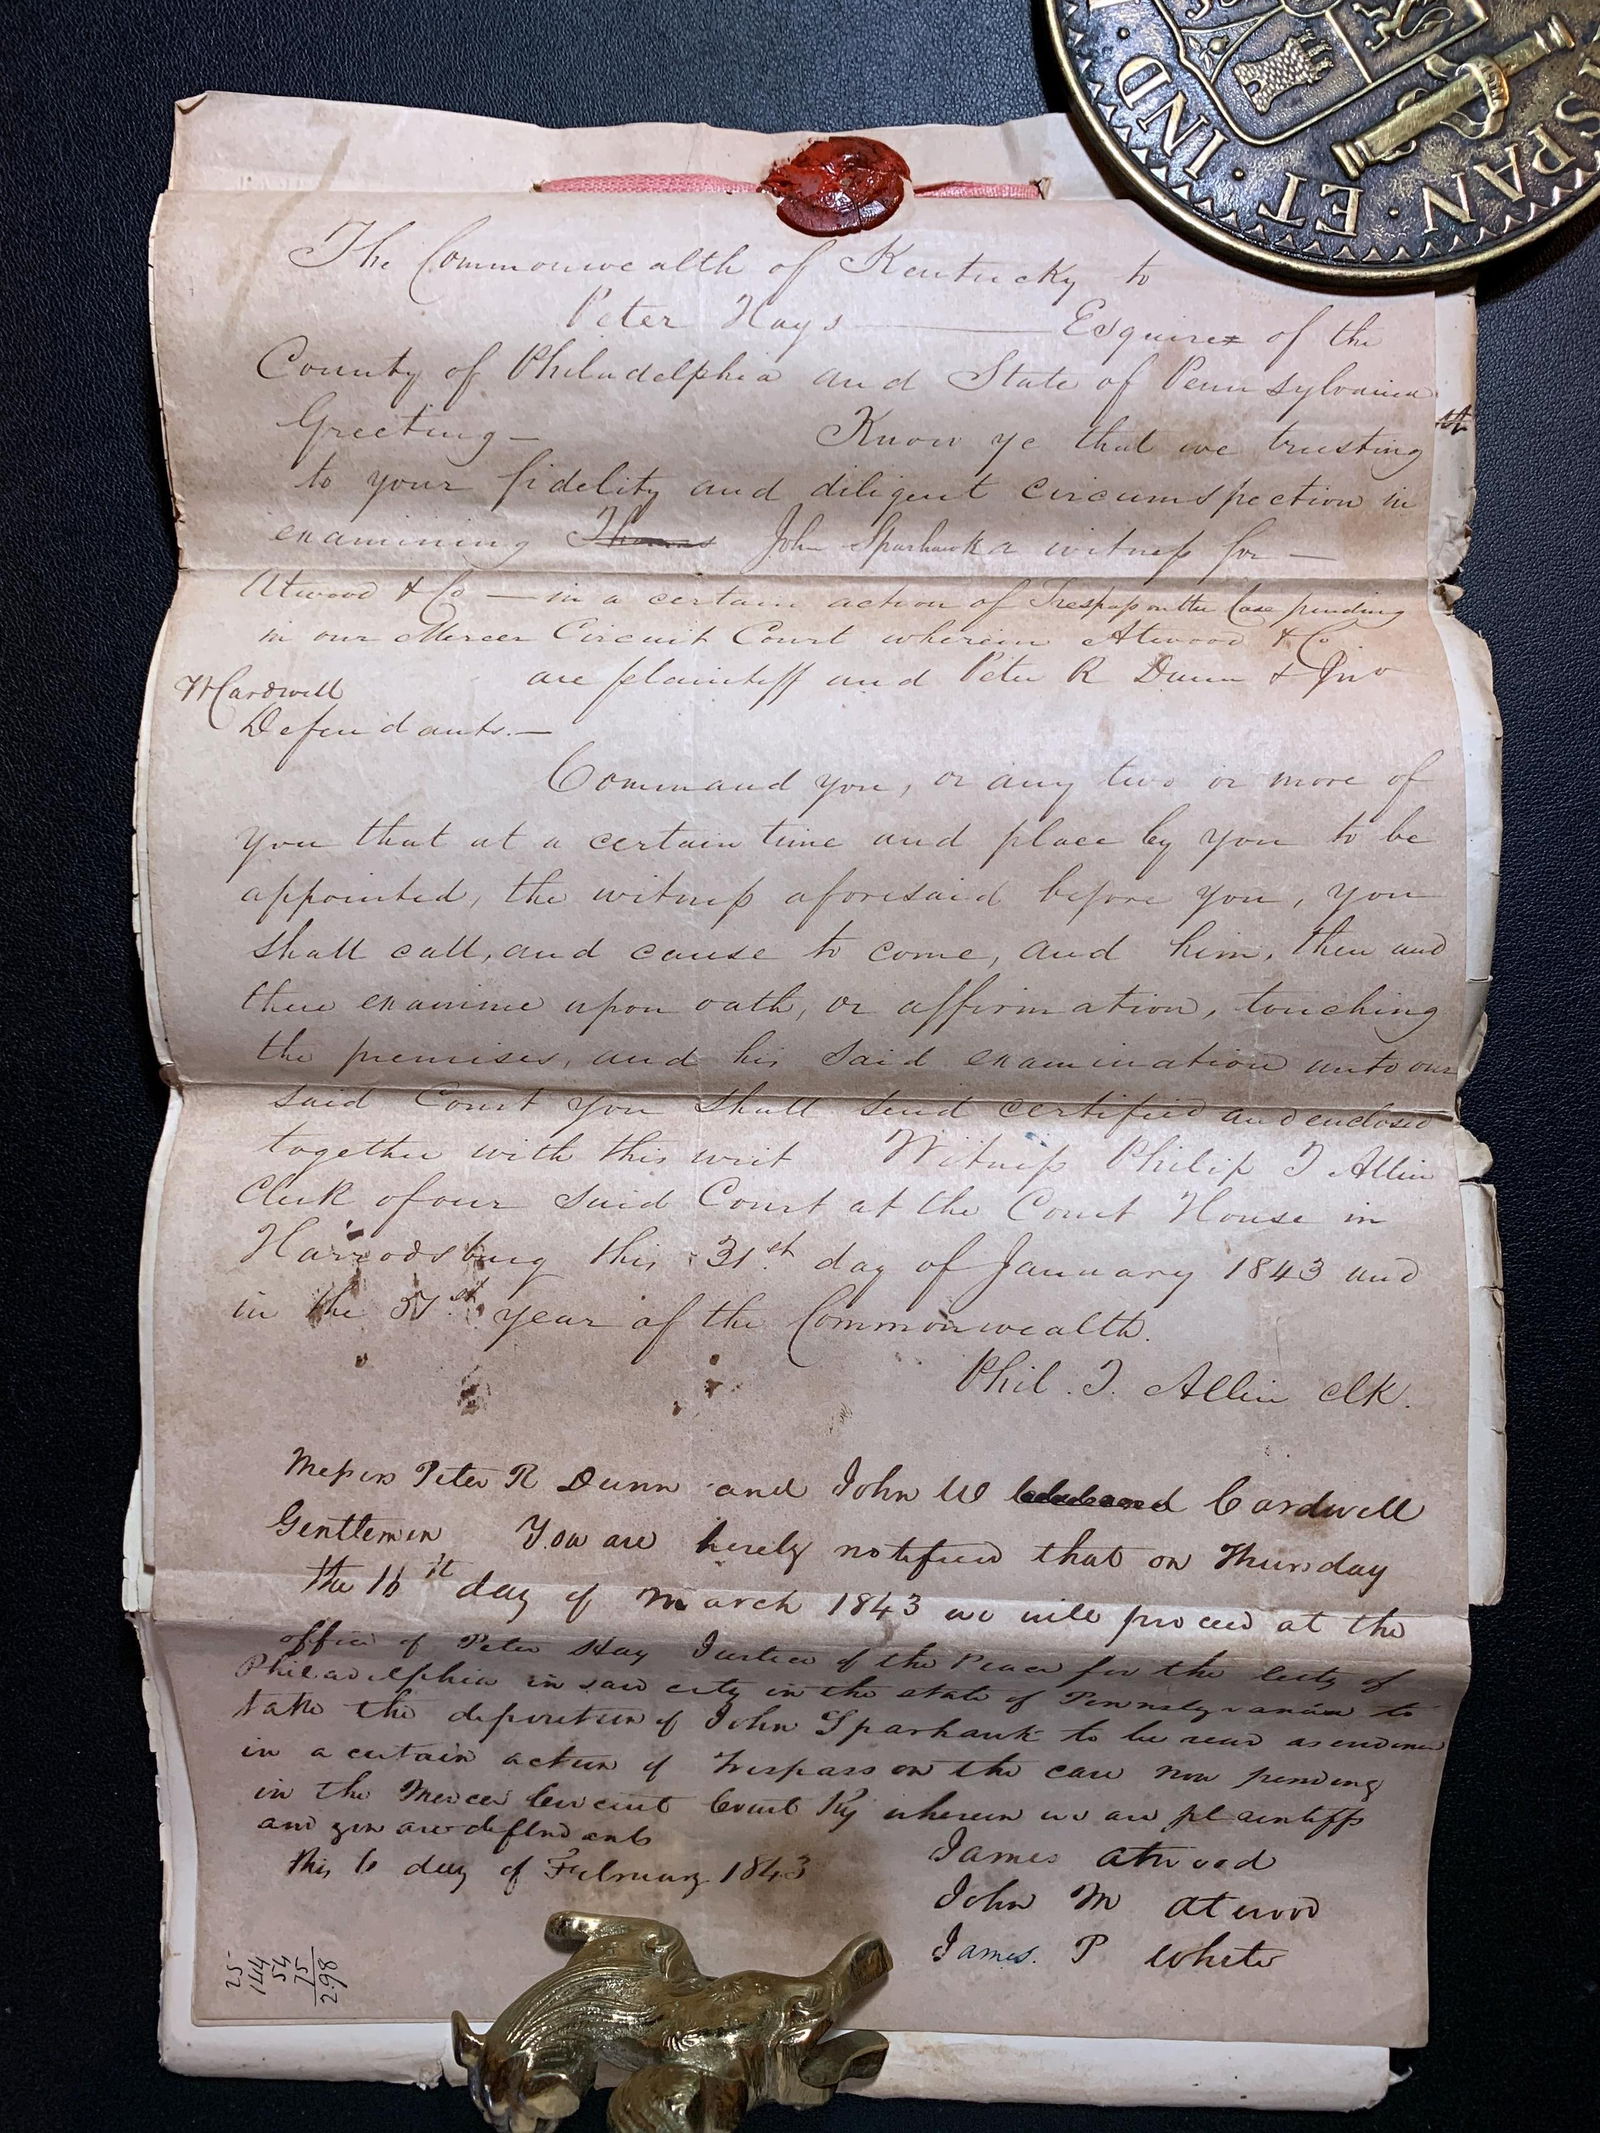 The Commonwealth of Kentucky to
Peter Hays — Esquire of the
County of Philadelphia and State of Pennsylvania
Greeting – Know ye that we trusting
to your fidelity and diligent circumspection in
examining Thomas John Sparhawk a witness for –
Atwood & Co – in a certain action of Trespass on the Case pending
in our Mercer Circuit Court wherein Atwood & Co
are plaintiff and Peter R Dunn & Jno
W Cardwell
Defendants. –
Command you, or any two or more of
you that at a certain time and place by you to be
appointed, the witness aforesaid before you, you
shall call, and cause to come, and him, then and
there examine upon oath, or affirmation, touching
the premises, and his said examination unto our
said Court you shall send certified and enclosed
together with this writ Witness Philip T Allin
Clerk of our said Court at the Court House in
Harrodsburg this 31st day of January 1843 and
in the 51st year of the Commonwealth.
Phil. T. Allin clk.
Messrs Peter R Dunn and John W Cardwell
Gentlemen You are hereby notified that on Thursday
the 16th day of March 1843 we will proceed at the
office of Peter Hay Justice of the Peace for the City of
Philadelphia in said city in the state of Pennsylvania to
take the deposition of John Sparhawk to be read as evidence
in a certain action of trespass on the case now pending
in the Mercer Circuit Court Ky wherein we are plaintiffs
and you are defendants
this 6 day of February 1843
James Atwood
John M Atwood
James P White
25
144
54
75
298
SPAN · ET · IND ·